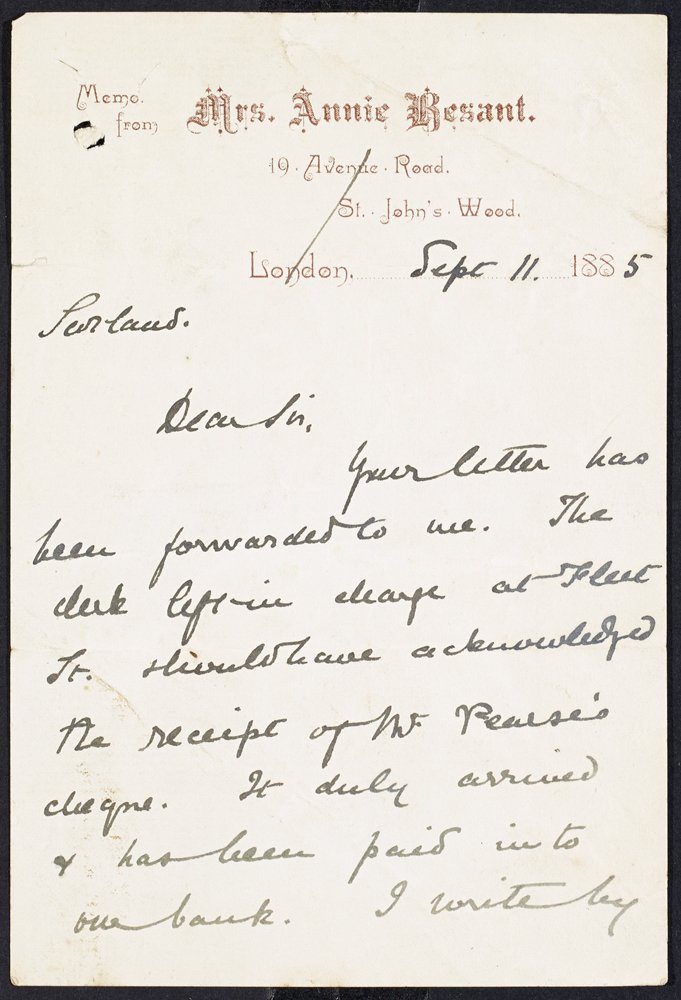 Memo.
from
Mrs. Annie Besant.
19 · Avenue · Road,
St. · John's · Wood,
London, Sept 11. 1885
Scotland.
Dear Sir,
Your letter has
been forwarded to me. The
clerk left in charge at Fleet
St. should have acknowledged
the receipt of Mr. Pearse's
cheque. It duly arrived
& has been paid in to
our bank. I write by